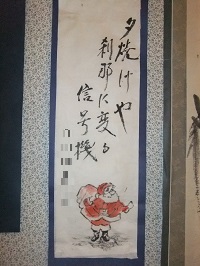 夕焼けや
刹那に変る
信号機